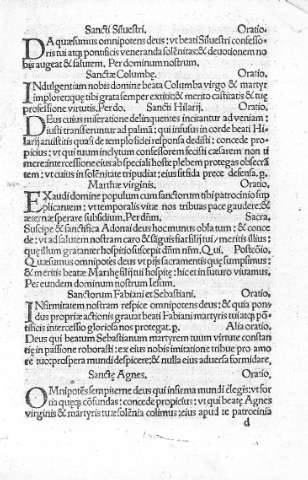 Sancti Siluestri. Oratio.
DA quæsumus omnipotens deus: vt beati Siluestri confesso-
ris tui atqꝫ pontificis veneranda solẽnitas: & deuotionem no
bis augeat & salutem. Per dominum nostrum.
Sanctæ Columbę. Oratio.
INdulgentiam nobis domine beata Columba virgo & martyr
imploret: quæ tibi grata semper extitit: & merito castitatis & tuę
professione virtutis. Perdo. Sancti Hilarij. Oratio.
DEus cuius miseratione delinquentes incitantur ad veniam:
iusti transferuntur ad palmã: qui infusus in corde beati Hi-
larij antistitis quasi de templo fidei responsa dedisti: concede pro-
picius: vt qui tuum inclytum confessorem fecisti cæsarem non ti
mere: intercessione eius ab speciali hoste plebem protegas obsecrã
tem: vt cuius in solẽnitate tripudiat: eius sit fida prece defensa. ꝑ.
Marthæ virginis. Oratio.
EXaudi domine populum cum sanctorum tibi patrocinio sup
plicantem: vt temporalis vitæ nos tribuas pace gaudere: &
æternæ sperare subsidium. Per dñm. Sacra.
Suscipe & sanctifica Adonai deus hoc munus oblatum: & conce
de: vt ad salutem nostram caro & sãguis sit filij tui/ meritis illius:
quę illum gratanter hospitio suscepit dñm nr̃m. Qui. Postcõio.
Quæsumus omnipotens deus: vt pijs sacramentis quę sumpsimus:
& meritis beatæ Marthę filij tui hospitę: hic et in futuro viuamus.
Per eundem dominum nostrum Iesum.
Sanctorum Fabiani et Sebastiani. Oratio.
INfirmitatem nostram respice omnipotens deus: & quia pon
dus propriæ actionis grauat beati Fabiani martyris tui atqꝫ põ
tificis intercessio gloriosa nos protegat. ꝑ. Alia oratio.
Deus qui beatum Sebastianum martyrem tuum virtute constan
tię in passione roborasti: ex eius nobis imitatione tribue pro amo
re tuo: prospera mundi despicere: & nulla eius aduersa formidare.
Sanctę Agnes. Oratio.
OMnipotẽs sempiterne deus qui infirma mundi elegis: vt for
tia quęqꝫ cõfundas: concede propicius: vt qui beatę Agnes
virginis & martyris tuæ solẽnia colimus: eius apud te patrocinia
d